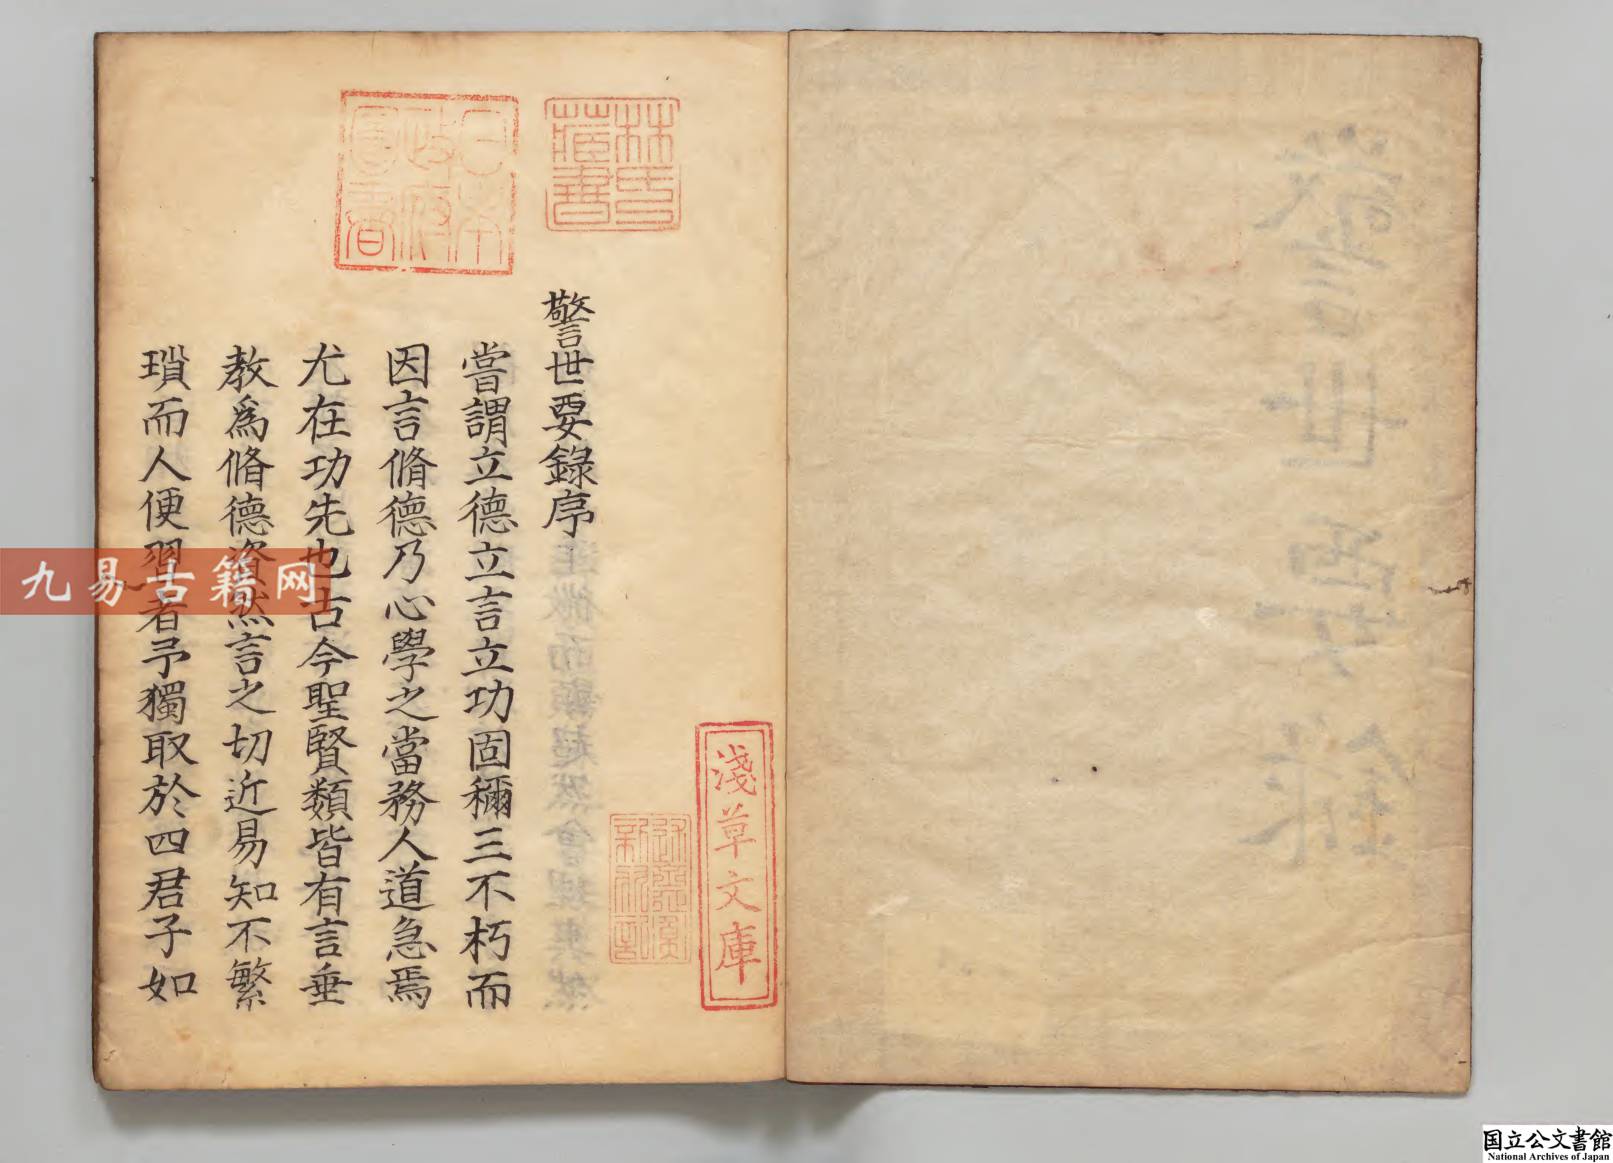 警世要錄
林氏藏書
日本政府圖書
淺草文庫
警世要錄序
嘗謂立德立言立功固稱三不朽而
因言脩德乃心學之當務人道急焉
尤在功先也古今聖賢類皆有言垂
教爲脩德資然言之切近易知不繁
瑣而人便習者予獨取於四君子如
九易古籍网
国立公文書館
National Archives of Japan